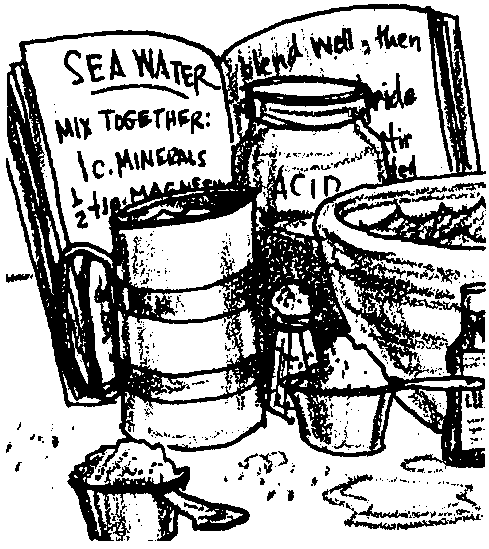 SEA WATER
MIX TOGETHER:
1 c. MINERALS
1/2 tsp. MAGNESIU
blend well, then
ACID